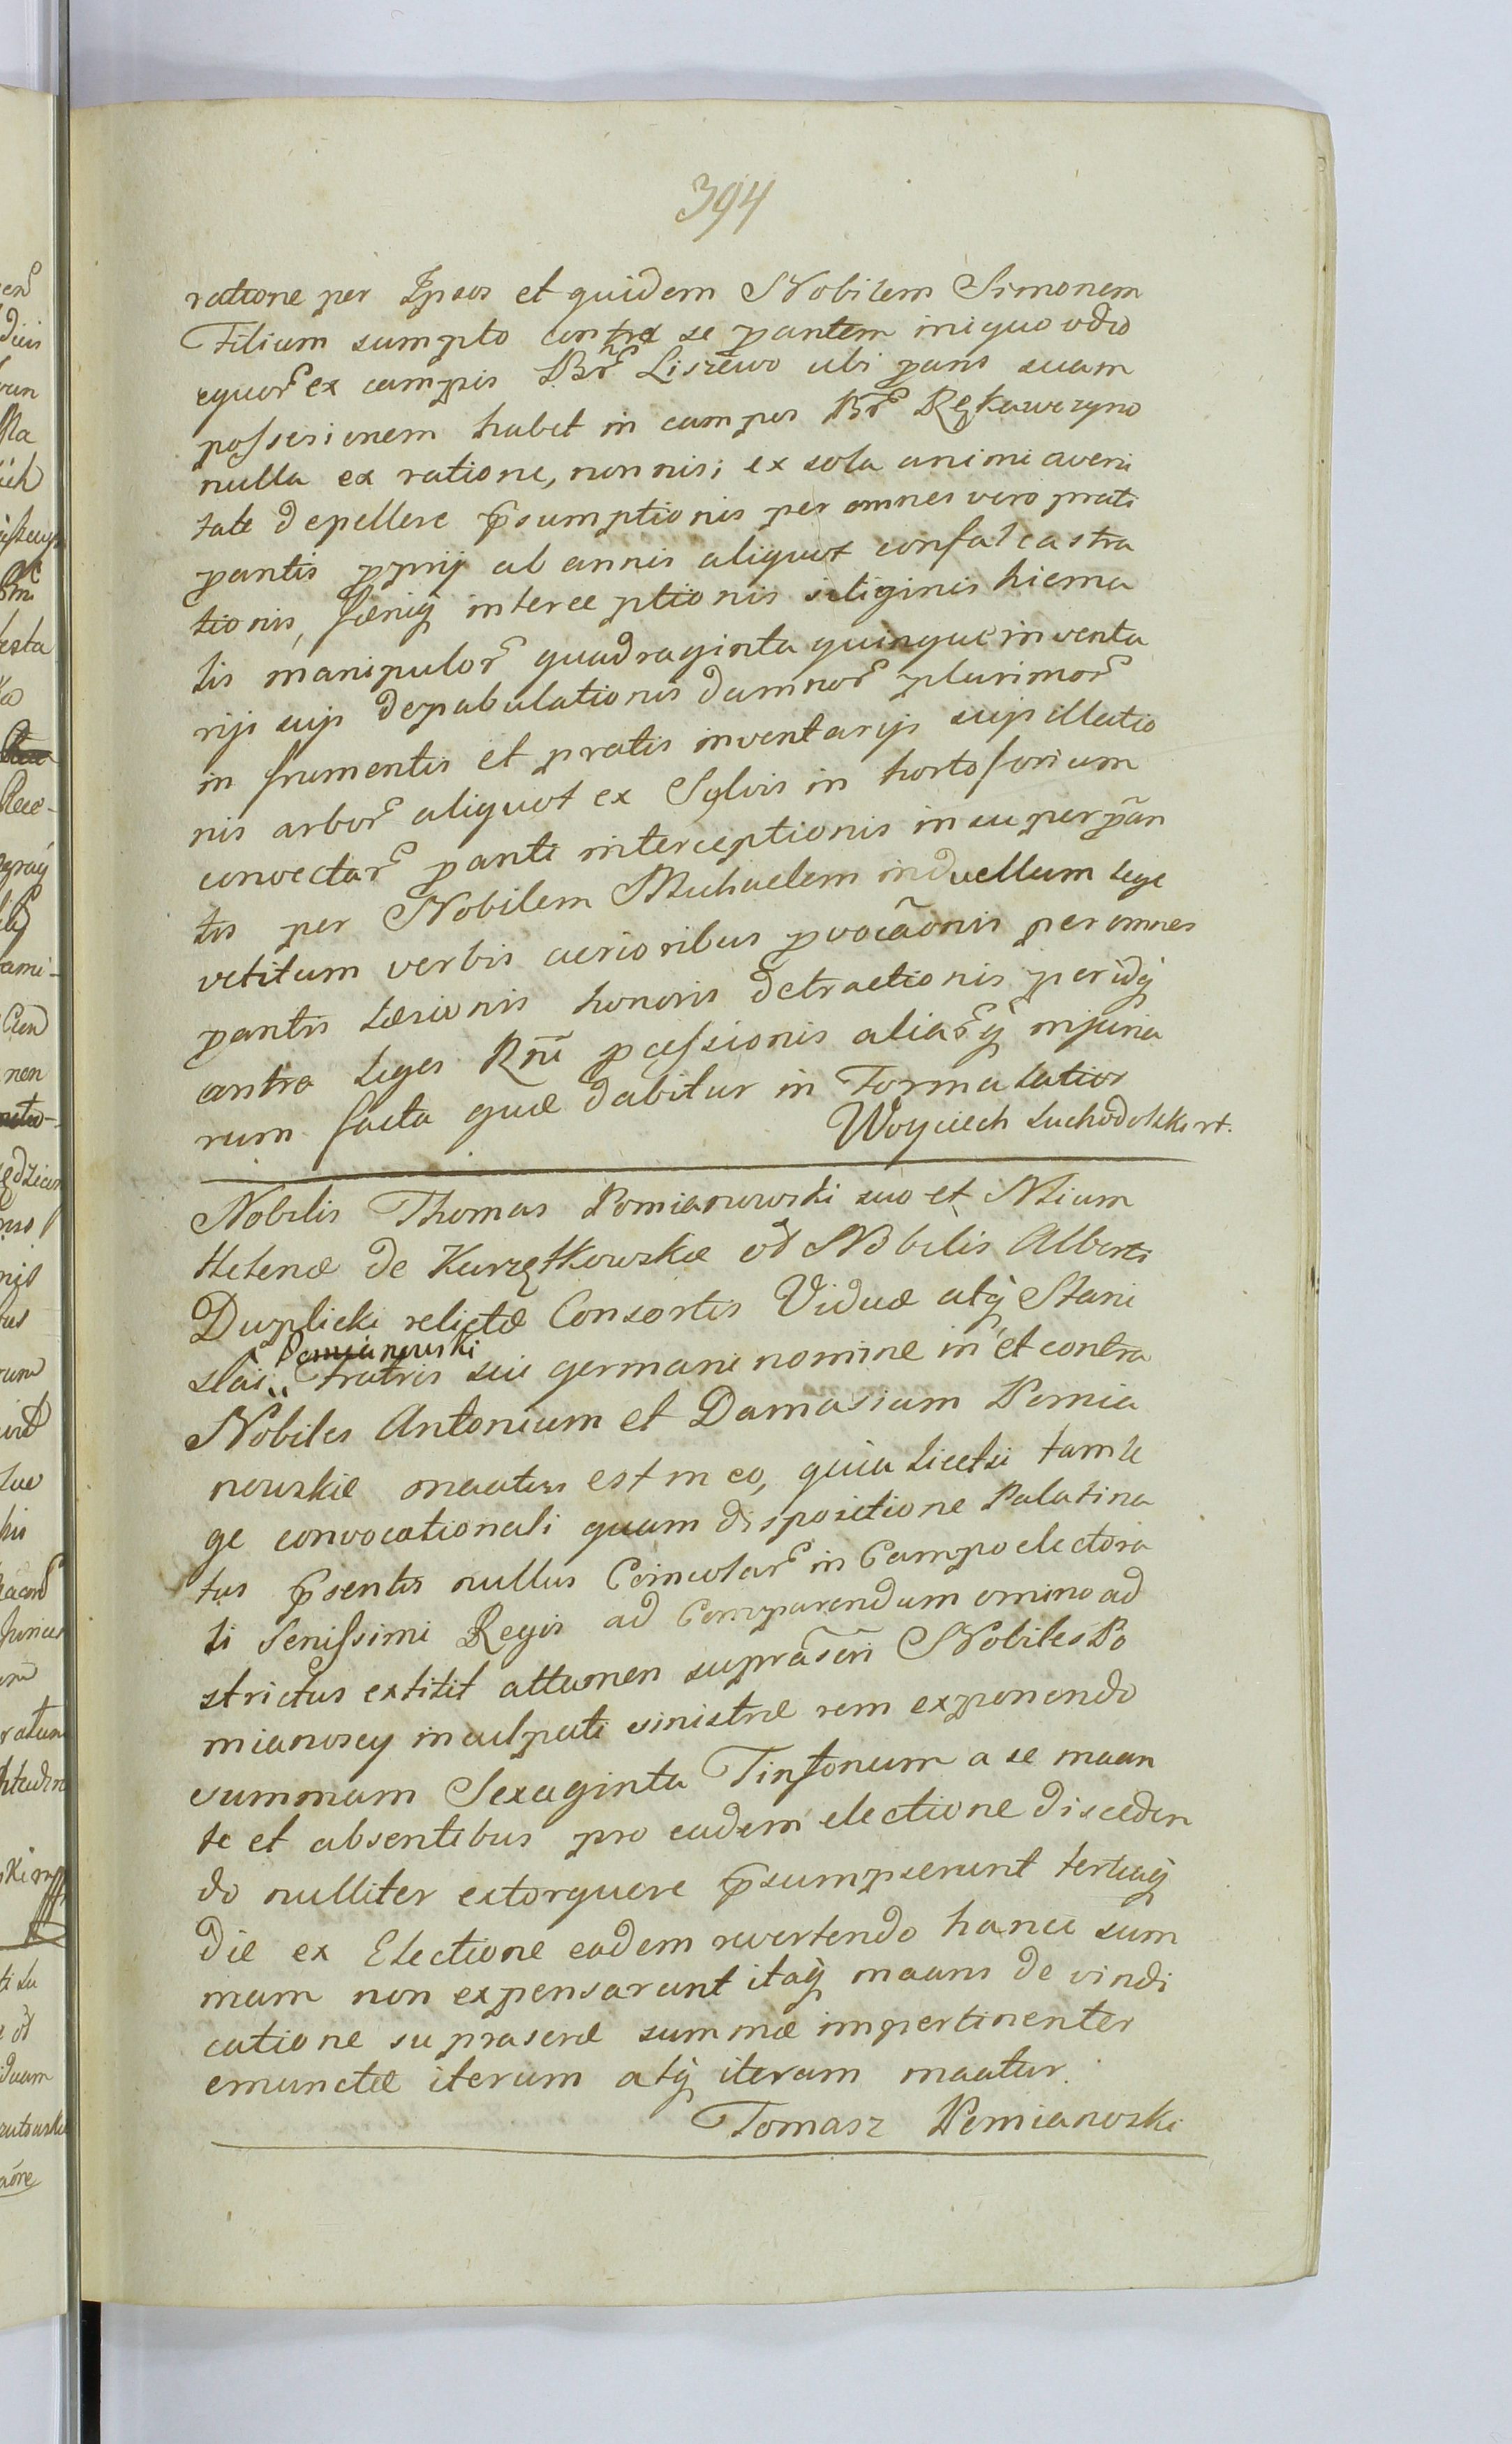 394
ratione per Ipsos et quidem Nobilem Simonem
Filium sumpto contra se pantem iniquo odio
equor ex campis Bor Liszewo ubi pans suam
possesionem habet in campos Bor Rękawczyno
nulla ex ratione, nonnisi ex sola animi aveni
tate depellere psumptionis per omnes vero prati
pantis pprij ab annis aliquot confalcastra
tionis, fæniq interceptionis siliginis hiema
lis manipulor quadraginta quinque inventa
rijs sujs depabulationis damnor plurimor
in frumentis et pratis inventarijs sujs illatio
nis arbor aliquot ex Sylvis in horto forium
convectar panti interceptionis insuper pãn
tis per Nobilem Michaelem induellum lege
vetitum verbis acrioribus pvocãonis per omnes
pantis læsionis honoris detractionis peridq
contra leges Rni pcessionis aliarq injuria
rum facta quæ dabitur in Forma latior
Woyciech Suchodolski rt.
Nobilis Thomas Pomianowski suo et Nlium
Helenæ de Kurzętkowskie od Nobilis Alberti
Duplicki relictæ Consortis Viduæ atq Stani
slai Pomianowski Fratris sui germani nomine in et contra
Nobiles Antonium et Damasium Pomia
nowskie maatus est in eo, quia licetsi tam le
ge convocationali quam dispositione Palatina
tus psentis nullus Coincolar in Campo electora
li Senissimi Regis ad Comparendum omino ad
strictus extitit attamen suprãscri Nobiles Po
mianoscy inculpati sinistræ rem exponendo
summam Sexaginta Tinfonum a se maan
te et absentibus pro eadem electione disceden
do nulliter extorquere psumpserunt tertiaq
die ex Electione eadem revertendo hance sum
mam non expensarunt itaq maans de vindi
catione suprascræ summæ impertinenter
emunctæ iterum atq iterum maatur.
Tomasz Pomianoski